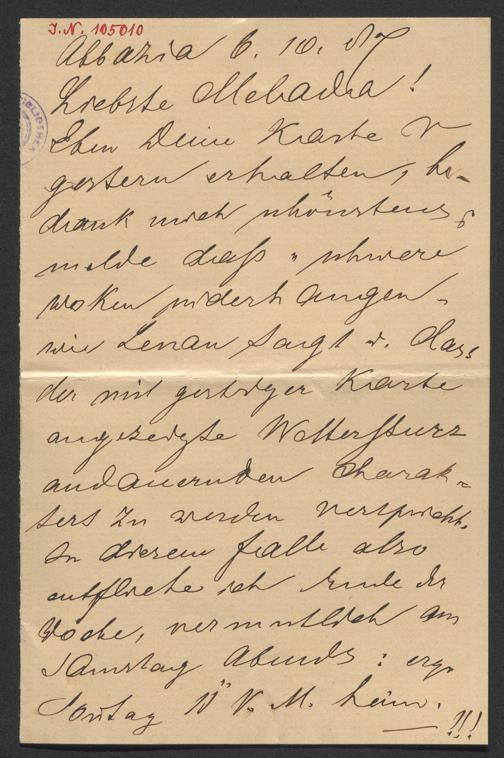 I.N. 105010
Abbazia 6. 10. 87
Liebste Melcadia!
Eben Deine Karte v
gestern erhalten, be-
dank mich schönstens,
melde daß „schwere
woken niederhangen"
wie Lenau sagt u. dass
der mit gestriger Karte
angezeigte Wettersturz
andauernden Charak-
ters zu werden verspricht.
In diesem Falle also
entfliehe ich Ende der
Woche, vermutlich am
Samstag Abends: ergo
Sontag 10" V.M. heim.
!!!